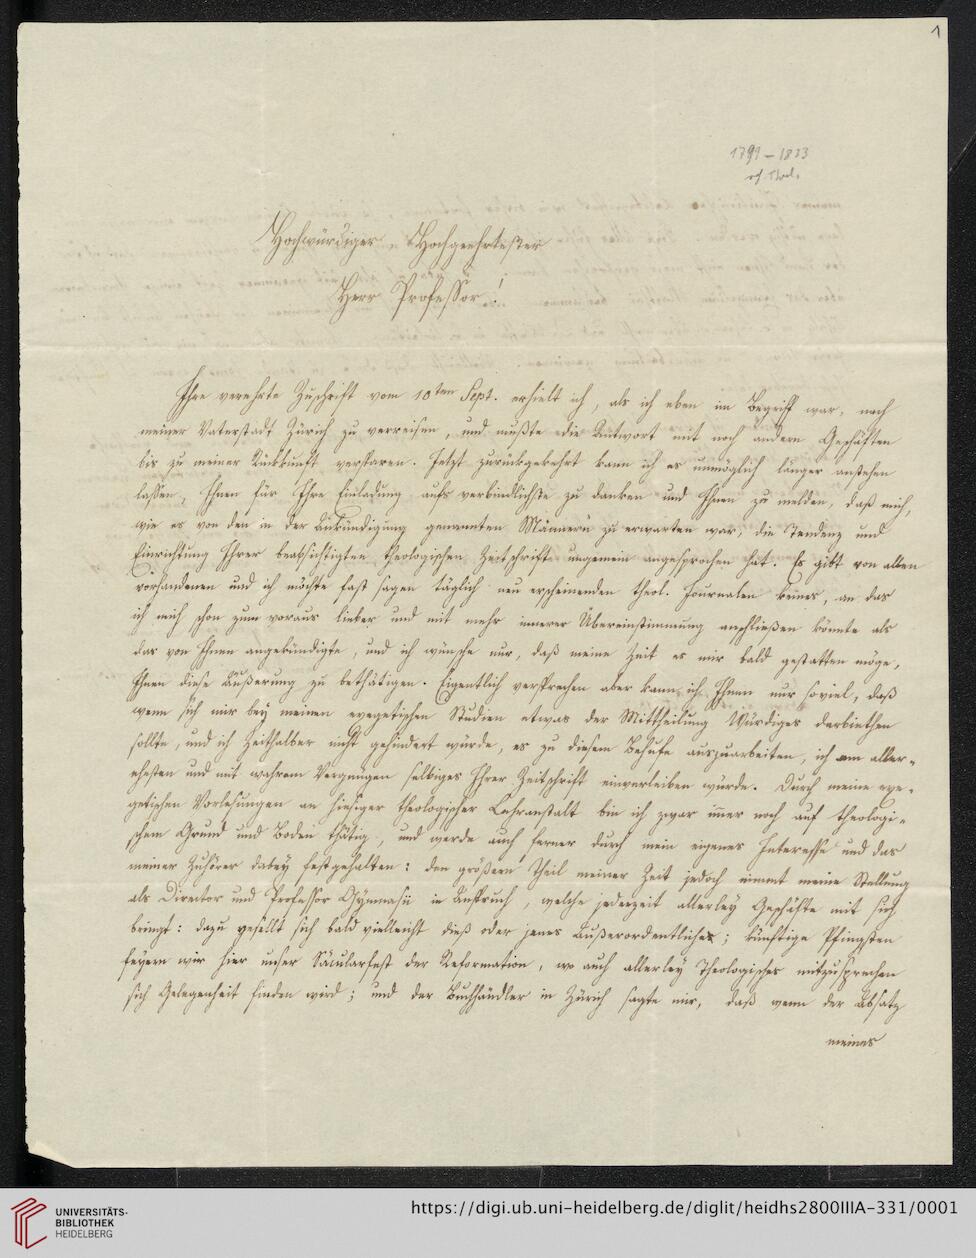 1
1799-1833
Hochwürdiger, Hochgeehrtester
Herr Professor!
Ihre verehrte Zuschrift vom 10ten Sept. erhielt ich, als ich eben im Begriff war, nach
meiner Vaterstadt Zürich zu verreisen, und mußte die Antwort mit noch andern Geschäften
bis zu meiner Rückkunft versparen. Jetzt zurückgekehrt kann ich es unmöglich länger anstehen
lassen, Ihnen für Ihre Einladung aufs verbindlichste zu danken und Ihnen zu melden, daß mich,
wie es von den in der Ankündigung genannten Männern zu erwarten war, die Tendenz und
Einrichtung Ihrer beabsichtigten theologischen Zeitschrift ungemein angesprochen hat. Es gibt von allen
vorhandenen und ich möchte fast sagen täglich neu erscheinenden theol. Journalen keines, an das
ich mich schon zum voraus lieber und mit mehr innerer Übereinstimmung anschließen könnte als
das von Ihnen angekündigte, und ich wünsche nur, daß meine Zeit es mir bald gestatten möge,
Ihnen diese Äußerung zu bethätigen. Eigentlich versprechen aber kann ich Ihnen nur soviel, daß
wenn sich mir bey meinen exegetischen Studien etwas der Mittheilung Würdiges darbiethen
sollte, und ich Zeithalber nicht gehindert würde, es zu diesem Behufe auszuarbeiten, ich am aller-
ehesten und mit wahrem Vergnügen selbiges Ihrer Zeitschrift einverleiben würde. Durch meine exe-
getischen Vorlesungen an hiesiger theologischer Lehranstalt bin ich zwar immer noch auf theologi-
schem Grund und Boden thätig, und werde auch ferner durch mein eigenes Interesse und das
meiner Zuhörer dabey festgehalten: den größern Theil meiner Zeit jedoch nimmt meine Stellung
als Director und Professor Gymnasii in Anspruch, welche jederzeit allerley Geschäfte mit sich
bringt: dazu gesellt sich bald vielleicht dieß oder jenes Außerordentliche; künftige Pfingsten
feyern wir hier unser Säcularfest der Reformation, wo auch allerley Theologisches mitzusprechen
sich Gelegenheit finden wird; und der Buchhändler in Zürich sagte mir, daß wenn der Absatz
meines
UNIVERSITÄTS-
BIBLIOTHEK
HEIDELBERG
https://digi.ub.uni-heidelberg.de/diglit/heidhs2800IIIA-331/0001